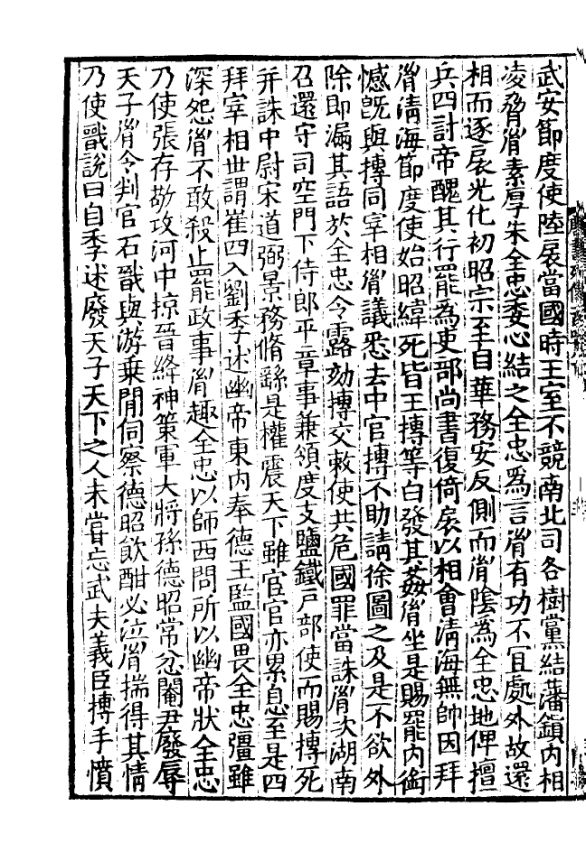 武安節度使陸扆當國時王室不競南北司各樹黨結藩鎮内相
凌脅胤素厚朱全忠委心結之全忠爲言胤有功不宜處外故還
相而逐扆光化初昭宗至自華務安反側而胤陰為全忠地俾擅
兵四討帝醜其行罷為吏部尚書復倚扆以相會清海無帥因拜
胤清海節度使始昭緯死皆王摶等白發其姦胤坐是賜罷内銜
憾既與摶同宰相胤議悉去中官摶不助請徐圖之及是不欲外
除即漏其語於全忠令露劾摶交敕使共危國罪當誅胤次湖南
召還守司空門下侍郎平章事兼領度支鹽鐵戶部使而賜摶死
并誅中尉宋道弼景務脩繇是權震天下雖宦官亦累息至是四
拜宰相世謂崔四入劉季述幽帝東内奉德王監國畏全忠彊雖
深怨胤不敢殺止罷政事胤趣全忠以師西問所以幽帝狀全忠
乃使張存敬攻河中掠晉絳神策軍大將孫德昭常忿閹尹廢辱
天子胤令判官石戩與游乘閒伺察德昭飲酣必泣胤揣得其情
乃使戩説曰自季述廢天子天下之人未嘗忘武夫義臣摶手憤